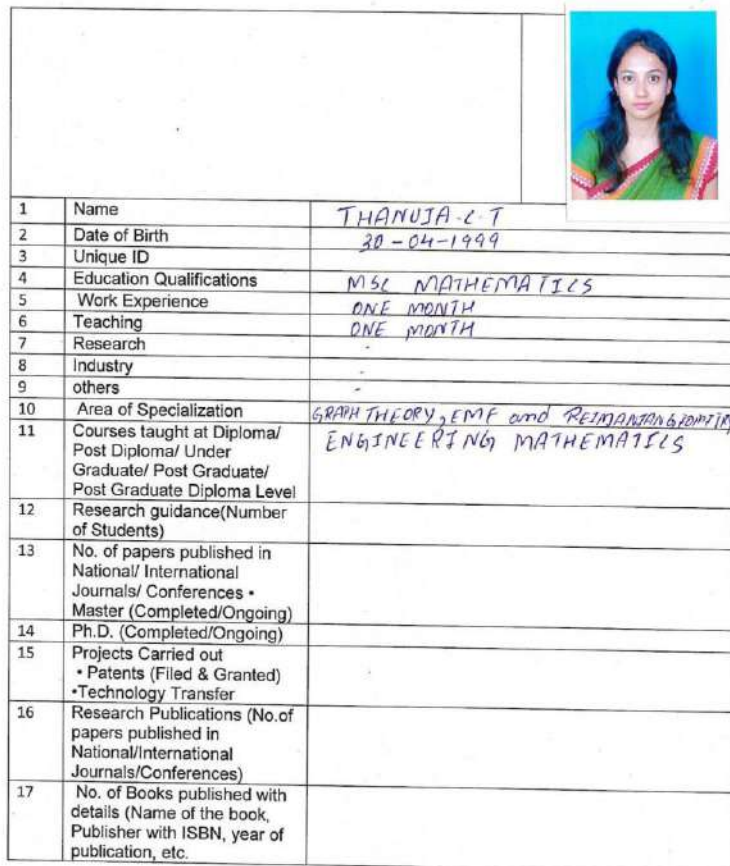 1 Name THANUJA.C.T
2 Date of Birth 30-04-1999
3 Unique ID
4 Education Qualifications MSC MATHEMATICS
5 Work Experience ONE MONTH
6 Teaching ONE MONTH
7 Research -
8 Industry -
9 others -
10 Area of Specialization GRAPH THEORY, EMF and
11 Courses taught at Diploma/ ENGINEERING MATHEMATICS
Post Diploma/ Under
Graduate/ Post Graduate/
Post Graduate Diploma Level
12 Research guidance(Number
of Students)
13 No. of papers published in
National/ International
Journals/ Conferences •
Master (Completed/Ongoing)
14 Ph.D. (Completed/Ongoing)
15 Projects Carried out
• Patents (Filed & Granted)
•Technology Transfer
16 Research Publications (No.of
papers published in
National/International
Journals/Conferences)
17 No. of Books published with
details (Name of the book,
Publisher with ISBN, year of
publication, etc.